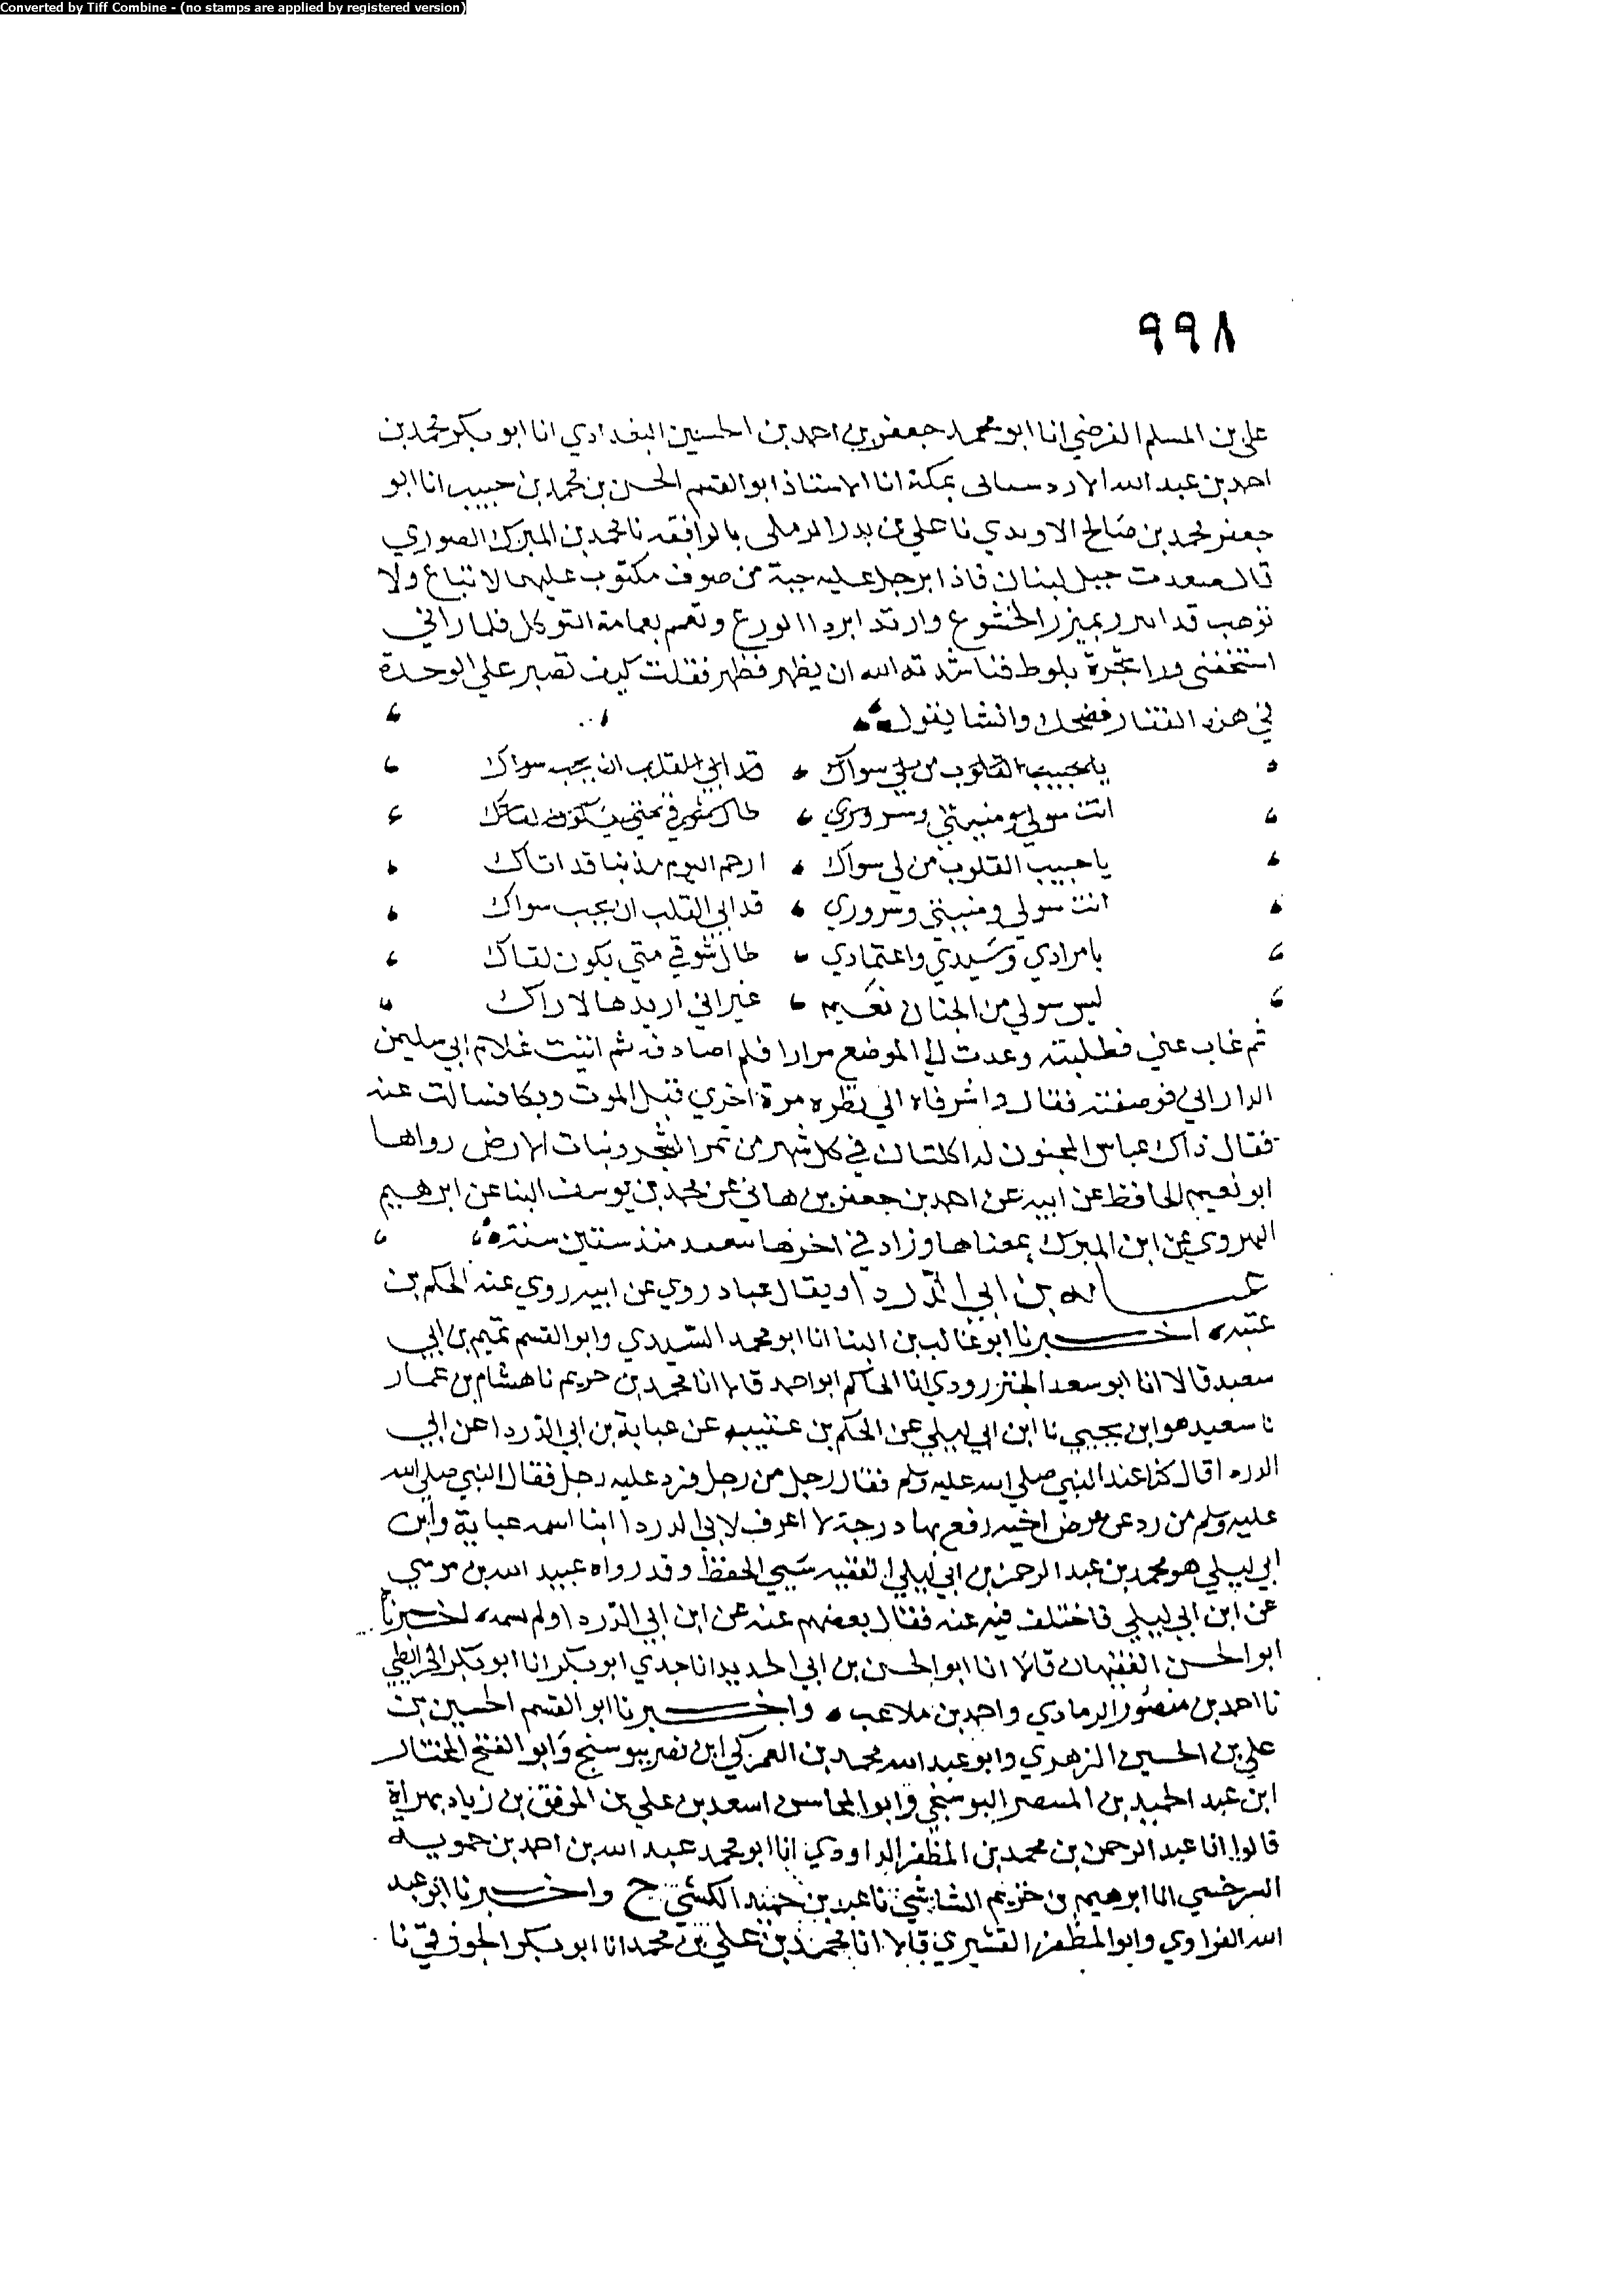 Converted by Tiff Combine - (no stamps are applied by registered version)
٩٩٨
علي بن المسلم الفرضي انا ابو محمد جعفر بن احمد بن الحسين البغدادي انا ابو بكر محمد بن
احمد بن عبد الله الاردستاني بمكة انا الاستاذ ابو القسم الحسن بن محمد بن حبيب انا ابو
جعفر محمد بن صالح نا علي بن بدر الرملي بالرافقه نا محمد بن المبرك الصوري
قال صعدت جبل لبنان فاذا برجل عليه جبة من صوف مكتوب عليها لا تباع ولا
توهب قد اتزر بميزر الخشوع وارتدا بردا الورع وتعمم بعمامة التوكل فلما راني
استخفى ورا شجرة بلوط فناشدته الله ان يظهر فظهر فقلت كيف تصبر علي الوحدة
في هذه القفار فضحك وانشا يقول
يا حبيب القلوب من لي سواك قد ابي القلب ان يحب سواك
انت سولي ومنيتي وسروري طال شوقي متي يكون لقاك
يا حبيب القلوب من لي سواك ارحم اليوم مذنبا قد اتاك
انت سولي ومنيتي وسروري قد ابي القلب ان يحب سواك
يا مرادي وسيدي واعتمادي طال شوقي متي يكون لقاك
ليس سولي من الجنان نعيم غير اني اريدها لاراك
ثم غاب عني فطلبته وعدت الي الموضع مرارا فلم اصادفه ثم اتيت غلام ابي سليمن
الداراني فوصفته فقال واشوقاه الي نظره مرة اخري قبل الموت وبكا فسالت عنه
فقال ذاك عباس المجنون له اكلتان في كل شهر من ثمر الشجر ونبات الارض رواها
ابو نعيم الحافظ عن ابيه عن احمد بن جعفر بن هاني عن محمد بن يوسف البنا عن ابرهيم
الهروي عن ابن المبرك بمعناها وزاد في اخرها منذ ستين سنة
عبايه بن ابي الدردا ويقال عباد روي عن ابيه روي عنه الحكم بن
عتبه اخبرنا ابو غالب بن البنا انا ابو محمد السيدي وابو القسم تميم بن ابي
سعيد قالا انا ابو سعد الجنزرودي انا الحاكم ابو احمد قال انا محمد بن خريم نا هشام بن عمار
نا سعيد هو ابن يحيي نا ابن ابي ليلي عن الحكم بن عتيبه عن عباية بن ابي الدردا عن ابي
الدردا قال كنا عند النبي صلي الله عليه وسلم فقال رجل من رجل فرد عليه رجل فقال النبي صلي الله
عليه وسلم من رد عن عرض اخيه رفع بها درجة لا اعرف لابي الدردا ابنا اسمه عباية وابن
ابي ليلي هو محمد بن عبد الرحمن بن ابي ليلي الفقيه سيي الحفظ وقد رواه عبيد الله بن موسي
عن ابن ابي ليلي فاختلف فيه عنه فقال بعضهم عنه عن ابن ابي الدردا ولم يسمه اخبرنا
ابو الحسن الفقيهان قالا انا ابو الحسن بن ابي الحديد انا جدي ابو بكر انا ابو بكر الخرايطي
نا احمد بن منصور الرمادي واحمد بن ملاعب واخبرنا ابو القسم الحسين بن
علي بن الحسين الزهري وابو عبد الله محمد بن العمركي ابن نصر ببوسنج وابو الفتح المختار
ابن عبد الحميد بن المنتصر البوسنجي وابو المحاسن اسعد بن علي بن الموفق بن زياد بهراة
قالوا انا عبد الرحمن بن محمد بن المظفر الداودي انا ابو محمد عبد الله بن احمد بن حمويه
السرخسي انا ابرهيم بن خزيم الشاشي نا عبد بن حميد الكشي ح واخبرنا ابو عبد
الله الفراوي وابو المظفر القشيري قالا انا محمد بن علي بن محمد انا ابو بكر الجوزقي نا